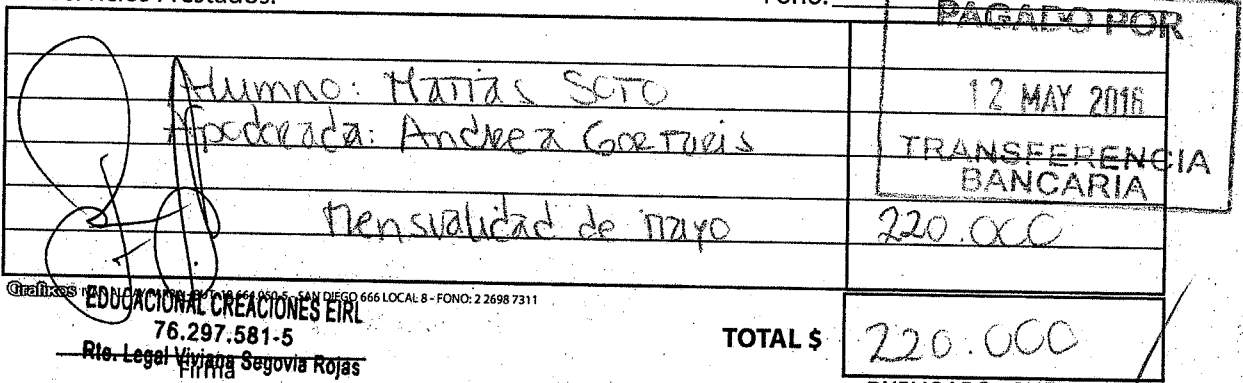 Prestados:
Fono:
PAGADO POR
12 MAY 2016
TRANSFERENCIA
BANCARIA
Alumno: Matías SOTO
Apoderada: Andrea
Mensualidad de mayo 220.000
Grafikos SAN DIEGO 666 LOCAL 8 - FONO: 2 2698 7311
EDUCACIONAL CREACIONES EIRL
76.297.581-5
Rte. Legal Viviana Segovia Rojas
Firma
TOTAL $ 220.000